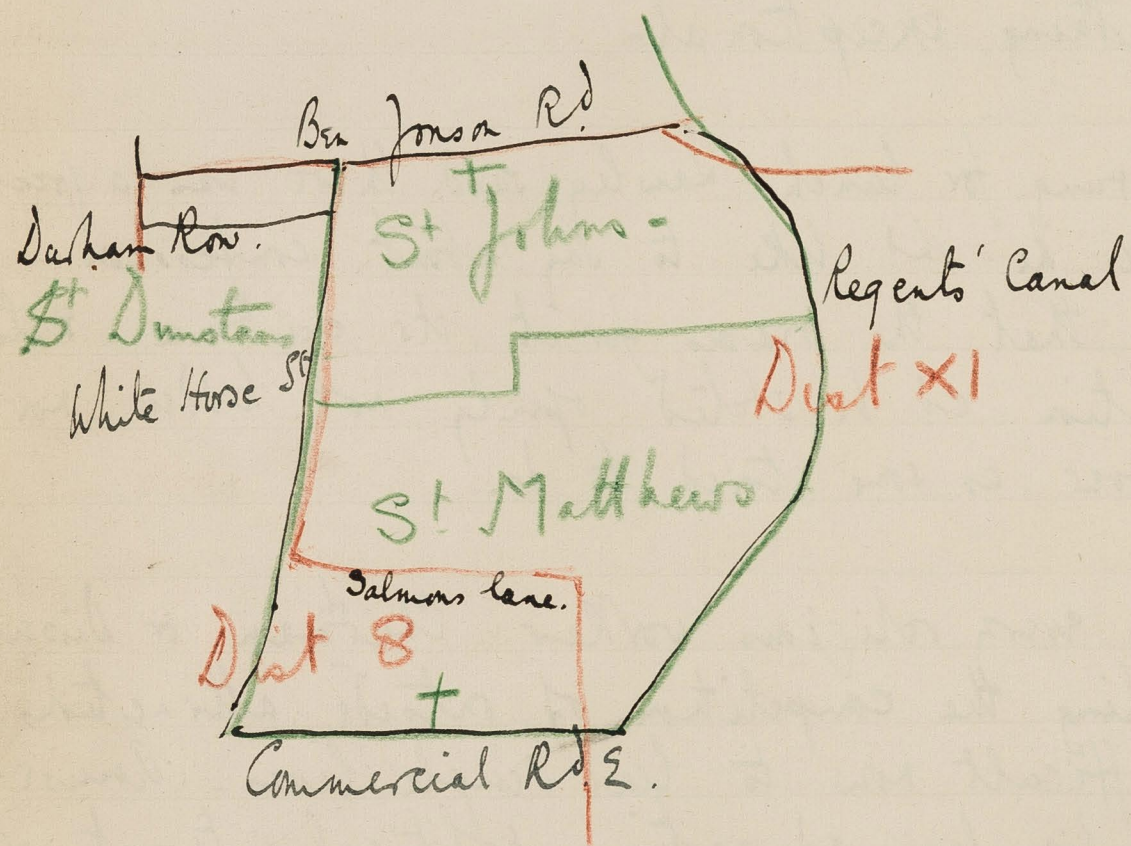 Ben Jonson Rd
St Johns -
Durham Row.
St Dunstans
Regents' Canal
White Horse St
Dist XI
St Matthews
Salmons lane.
Dist 8
Commercial Rd. E.